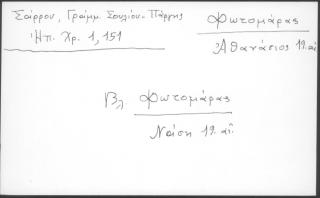 Σάρρου, Γραμμ. Σουλίου. Πάργης
Ἠπ. Χρ. 1, 151
Φωτομάρας
Ἀθανάσιος 19. αἰ.
Βλ. Φωτομάρας
Νάσης 19. αἰ.